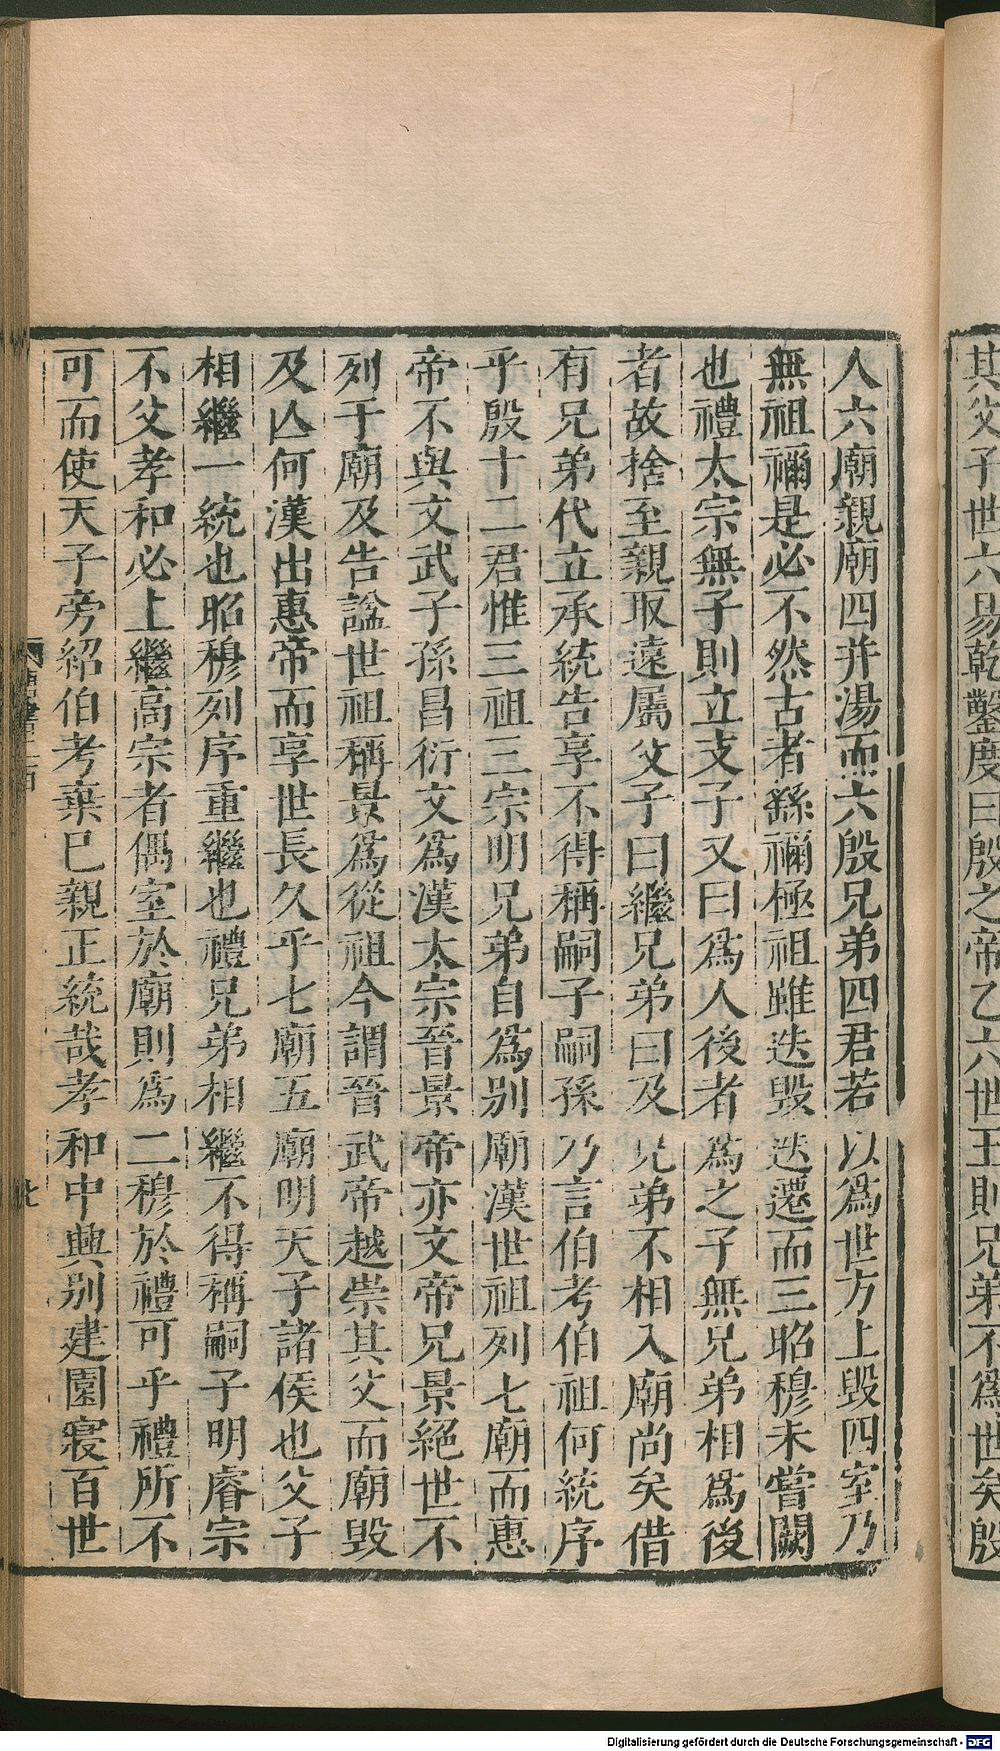 其父子世六易乾鑿度曰殷之帝乙六世王則兄弟不爲世矣殷
人六廟親廟四并湯而六殷兄弟四君若以爲世方上毀四室乃
無祖禰是必不然古者繇禰極祖雖迭毀迭遷而三昭穆未嘗闕
也禮太宗無子則立支子又曰爲人後者爲之子無兄弟相爲後
者故捨至親取遠屬父子曰繼兄弟曰及兄弟不相入廟尚矣借
有兄弟代立承統告享不得稱嗣子嗣孫乃言伯考伯祖何統序
乎殷十二君惟三祖三宗明兄弟自爲别廟漢世祖列七廟而惠
帝不與文武子孫昌衍文爲漢太宗晉景帝亦文帝兄景絕世不
列于廟及告謚世祖稱景爲從祖今謂晉武帝越崇其父而廟毀
及亾何漢出惠帝而享世長久乎七廟五廟明天子諸侯也父子
相繼一統也昭穆列序重繼也禮兄弟相繼不得稱嗣子明睿宗
不父孝和必上繼高宗者偶室於廟則爲二穆於禮可乎禮所不
可而使天子旁紹伯考棄巳親正統哉孝和中興别建園寢百世
Digitalisierung gefördert durch die Deutsche Forschungsgemeinschaft - DFG